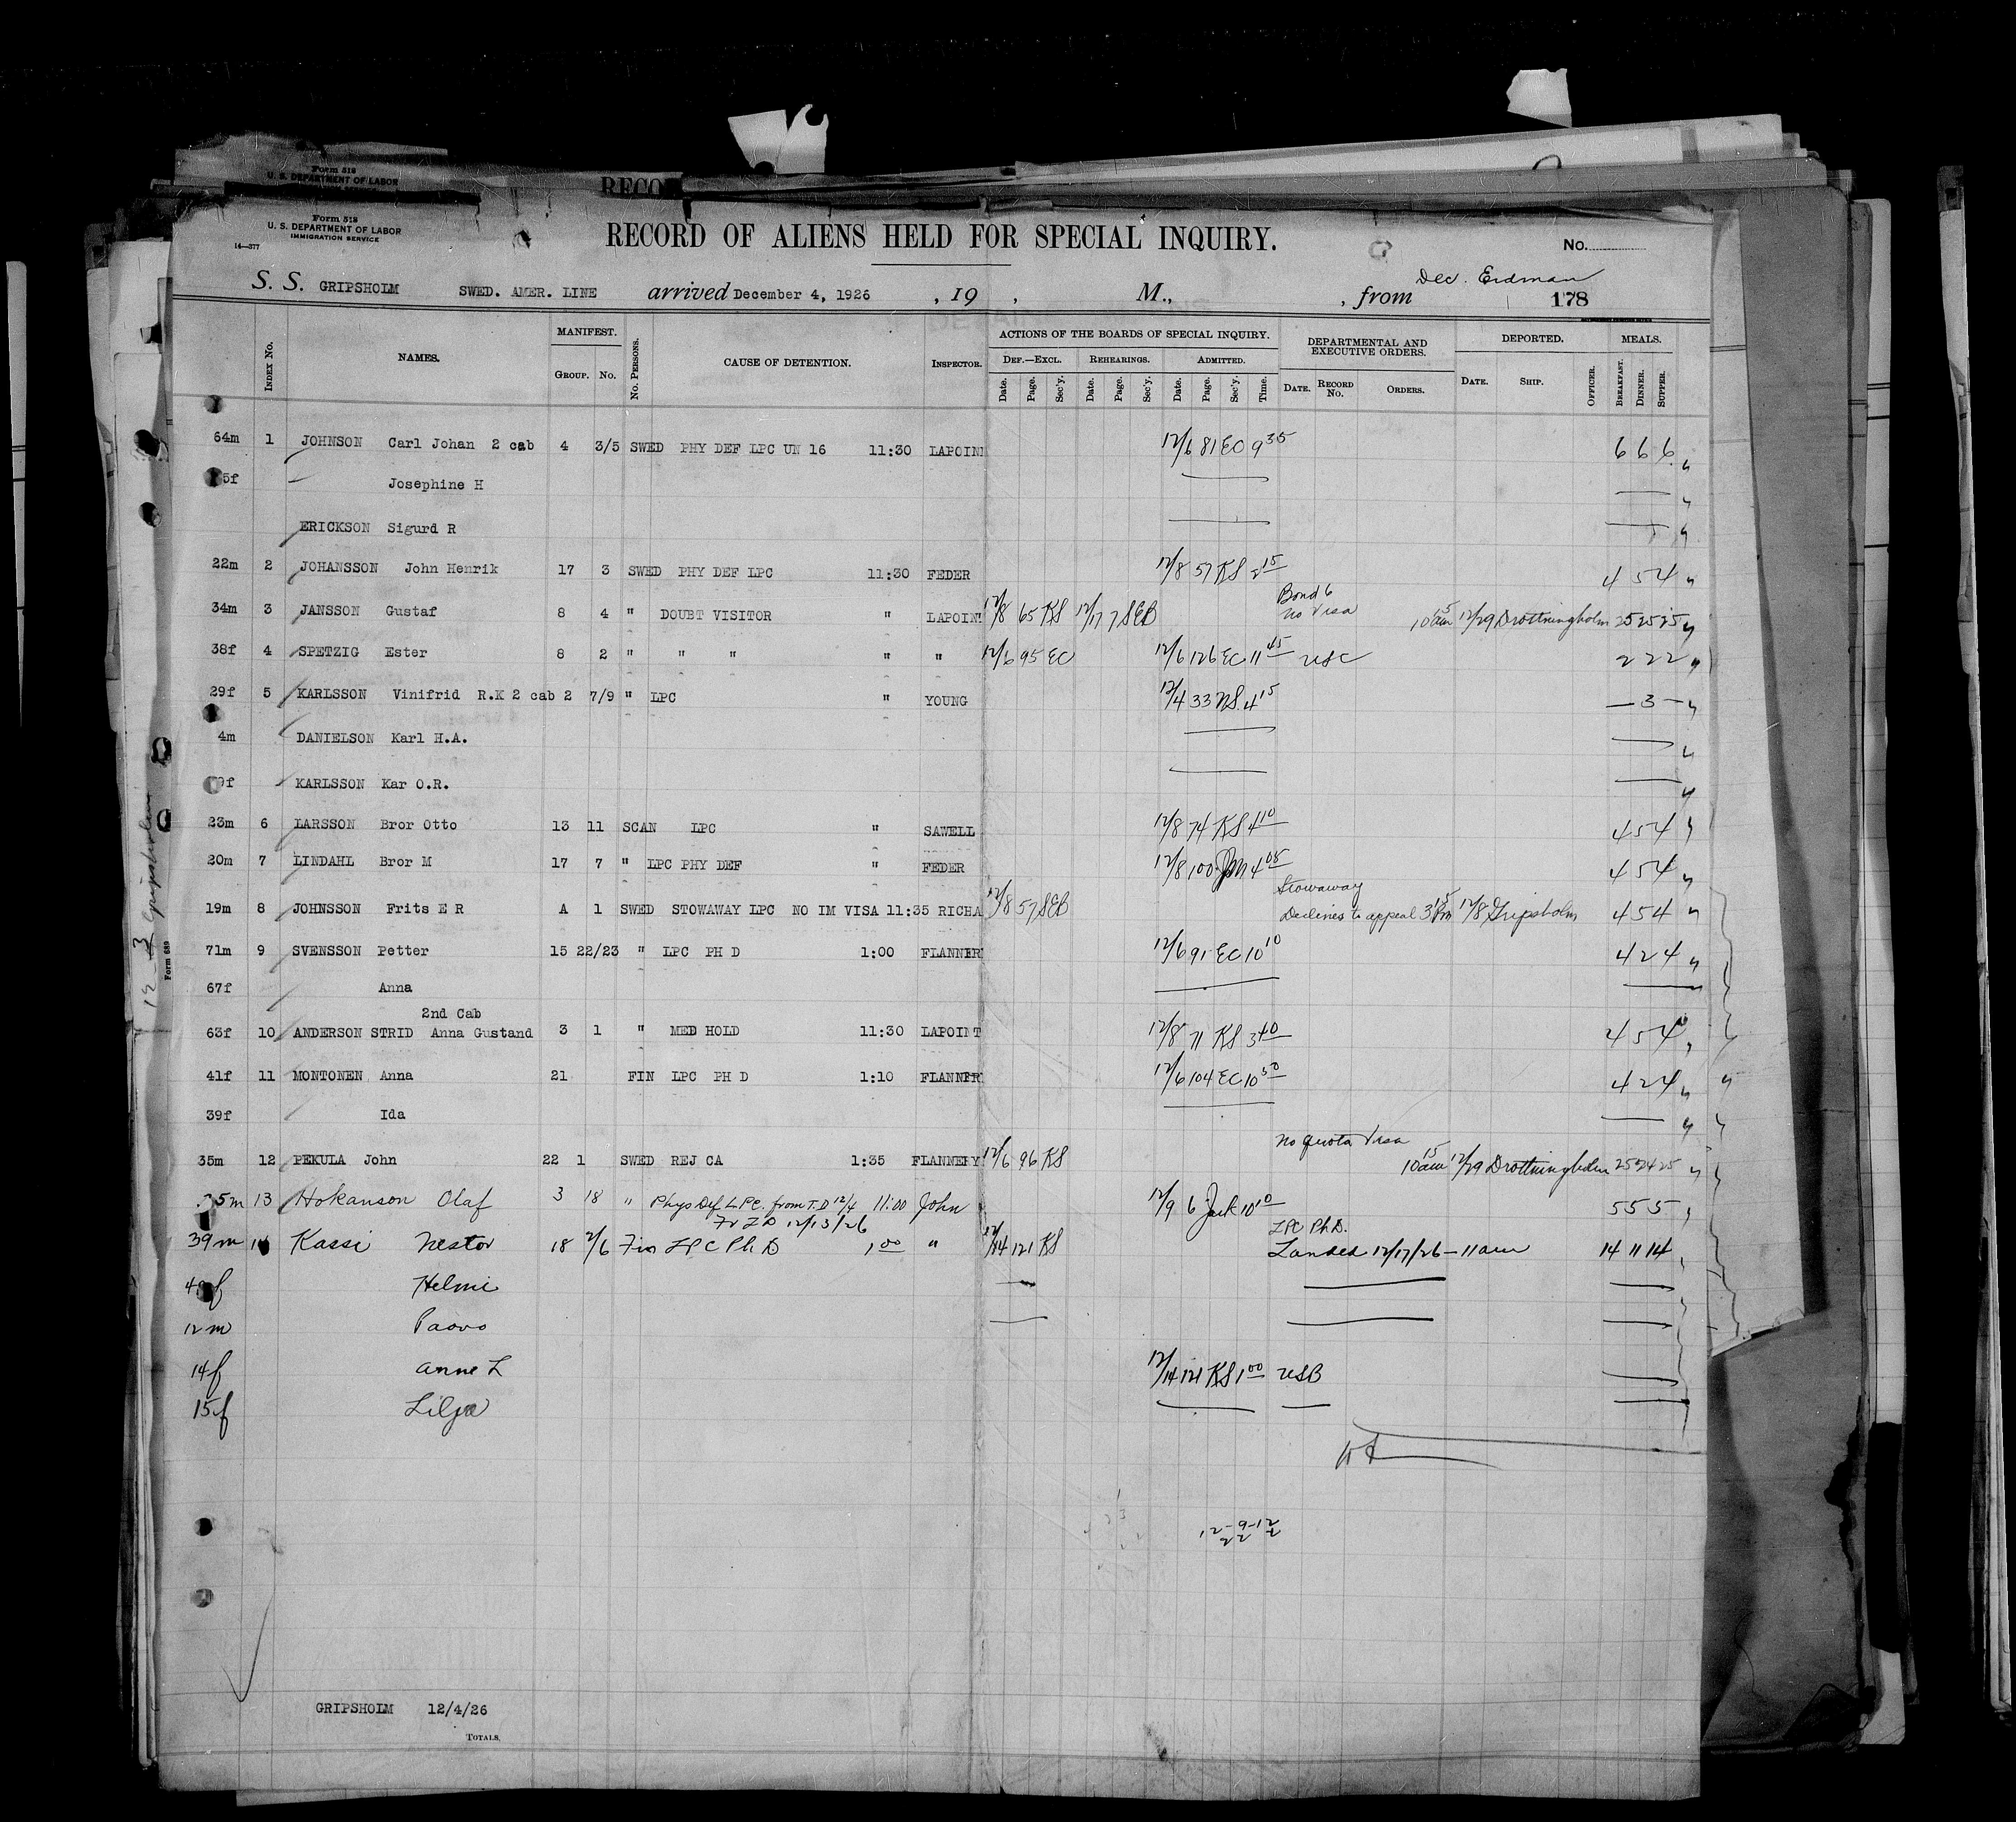 Form 518
U. S. DEPARTMENT OF LABOR
RECO
Form 518
U. S. DEPARTMENT OF LABOR
IMMIGRATION SERVICE
14—377
RECORD OF ALIENS HELD FOR SPECIAL INQUIRY.
No.
S. S. GRIPSHOLM SWED. AMER. LINE arrived December 4, 1926 , 19 , M., , from Dec. Erdman 178
INDEX No. NAMES. MANIFEST. GROUP. No. No. PERSONS. CAUSE OF DETENTION. INSPECTOR. ACTIONS OF THE BOARDS OF SPECIAL INQUIRY. DEPARTMENTAL AND EXECUTIVE ORDERS. DEPORTED. MEALS.
DEF.—EXCL. REHEARINGS. ADMITTED.
Date. Page. Sec'y. Date. Page. Sec'y. Date. Page. Sec'y. Time. DATE. RECORD No. ORDERS. DATE. SHIP. OFFICER. BREAKFAST. DINNER. SUPPER.
64m 1 JOHNSON Carl Johan 2 cab 4 3/5 SWED PHY DEF LPC UN 16 11:30 LAPOIN 12/6 81 EC 9 35 6 6 6
5f Josephine H
ERICKSON Sigurd R
22m 2 JOHANSSON John Henrik 17 3 SWED PHY DEF LPC 11:30 FEDER 12/8 57 KS 2 15 4 5 4
Bond 6
34m 3 JANSSON Gustaf 8 4 " DOUBT VISITOR " LAPOINT 12/8 65 KS 12/17 7 SEB no Visa 10 15 am 12/29 Drottningholm 25 25 25
38f 4 SPETZIG Ester 8 2 " " " " " 12/6 95 EC 12/6 126 EC 11 45 USC 2 2 2
29f 5 KARLSSON Vinifrid R.K 2 cab 2 7/9 " LPC " YOUNG 12/4 33 NS 4 15 — 3 —
4m DANIELSON Karl H.A.
9f KARLSSON Kar O.R.
23m 6 LARSSON Bror Otto 13 11 SCAN LPC " SAWELL 12/8 74 KS 4 10 4 5 4
20m 7 LINDAHL Bror M 17 7 " LPC PHY DEF " FEDER 12/8 100 JM 4 05 4 5 4
Stowaway
19m 8 JOHNSSON Frits E R A 1 SWED STOWAWAY LPC NO IM VISA 11:35 RICHA 12/8 57 SEB Declines to appeal 3 15 pm 12/8 Gripsholm 4 5 4
71m 9 SVENSSON Petter 15 22/23 " LPC PH D 1:00 FLANNER 12/6 91 EC 10 10 4 2 4
67f Anna
2nd Cab
63f 10 ANDERSON STRID Anna Gustand 3 1 " MED HOLD 11:30 LAPOINT 12/8 71 KS 3 40 4 5 4
41f 11 MONTONEN Anna 21 FIN LPC PH D 1:10 FLANNER 12/6 104 EC 10 50 4 2 4
39f Ida
No quota Visa
35m 12 PEKULA John 22 1 SWED REJ CA 1:35 FLANNERY 12/6 96 KS 10 15 am 12/29 Drottningholm 25 24 25
5m 13 Hokanson Olaf 3 18 " Phys Def LPC. from T.D 12/4 11:00 John 12/9 6 10 10 5 5 5
12/13/26 LPC Ph.D.
39m 14 Kassi Nestor 18 2/6 Fin LPC Ph D 1 00 " 12/14 121 KS Landed 12/17/26 — 11am 14 11 14
f Helmi
12m Paavo
14f Anne L 12/14 121 KS 1 00 USB
15f Lilja
12-9-12
2 2 2
GRIPSHOLM 12/4/26
TOTALS.
12-3 Gripsholm
Form 689